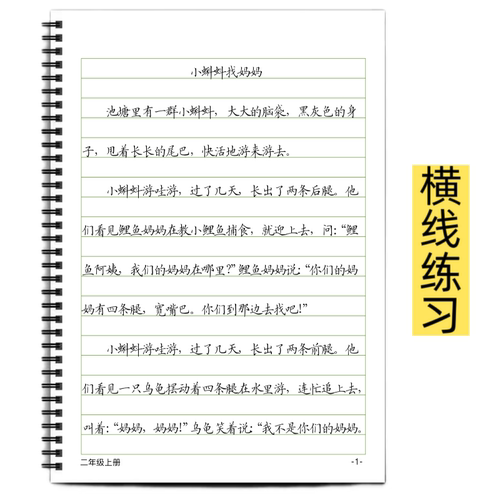 小蝌蚪找妈妈
池塘里有一群小蝌蚪，大大的脑袋，黑灰色的身
子，甩着长长的尾巴，快活地游来游去。
小蝌蚪游哇游，过了几天，长出了两条后腿。他
们看见鲤鱼妈妈在教小鲤鱼捕食，就迎上去，问：“鲤
鱼阿姨，我们的妈妈在哪里？”鲤鱼妈妈说：“你们的妈
妈有四条腿，宽嘴巴。你们到那边去找吧！”
小蝌蚪游哇游，过了几天，长出了两条前腿。他
们看见一只乌龟摆动着四条腿在水里游，连忙追上去，
叫着：“妈妈，妈妈！”乌龟笑着说：“我不是你们的妈妈。
二年级上册
-1-
横线练习